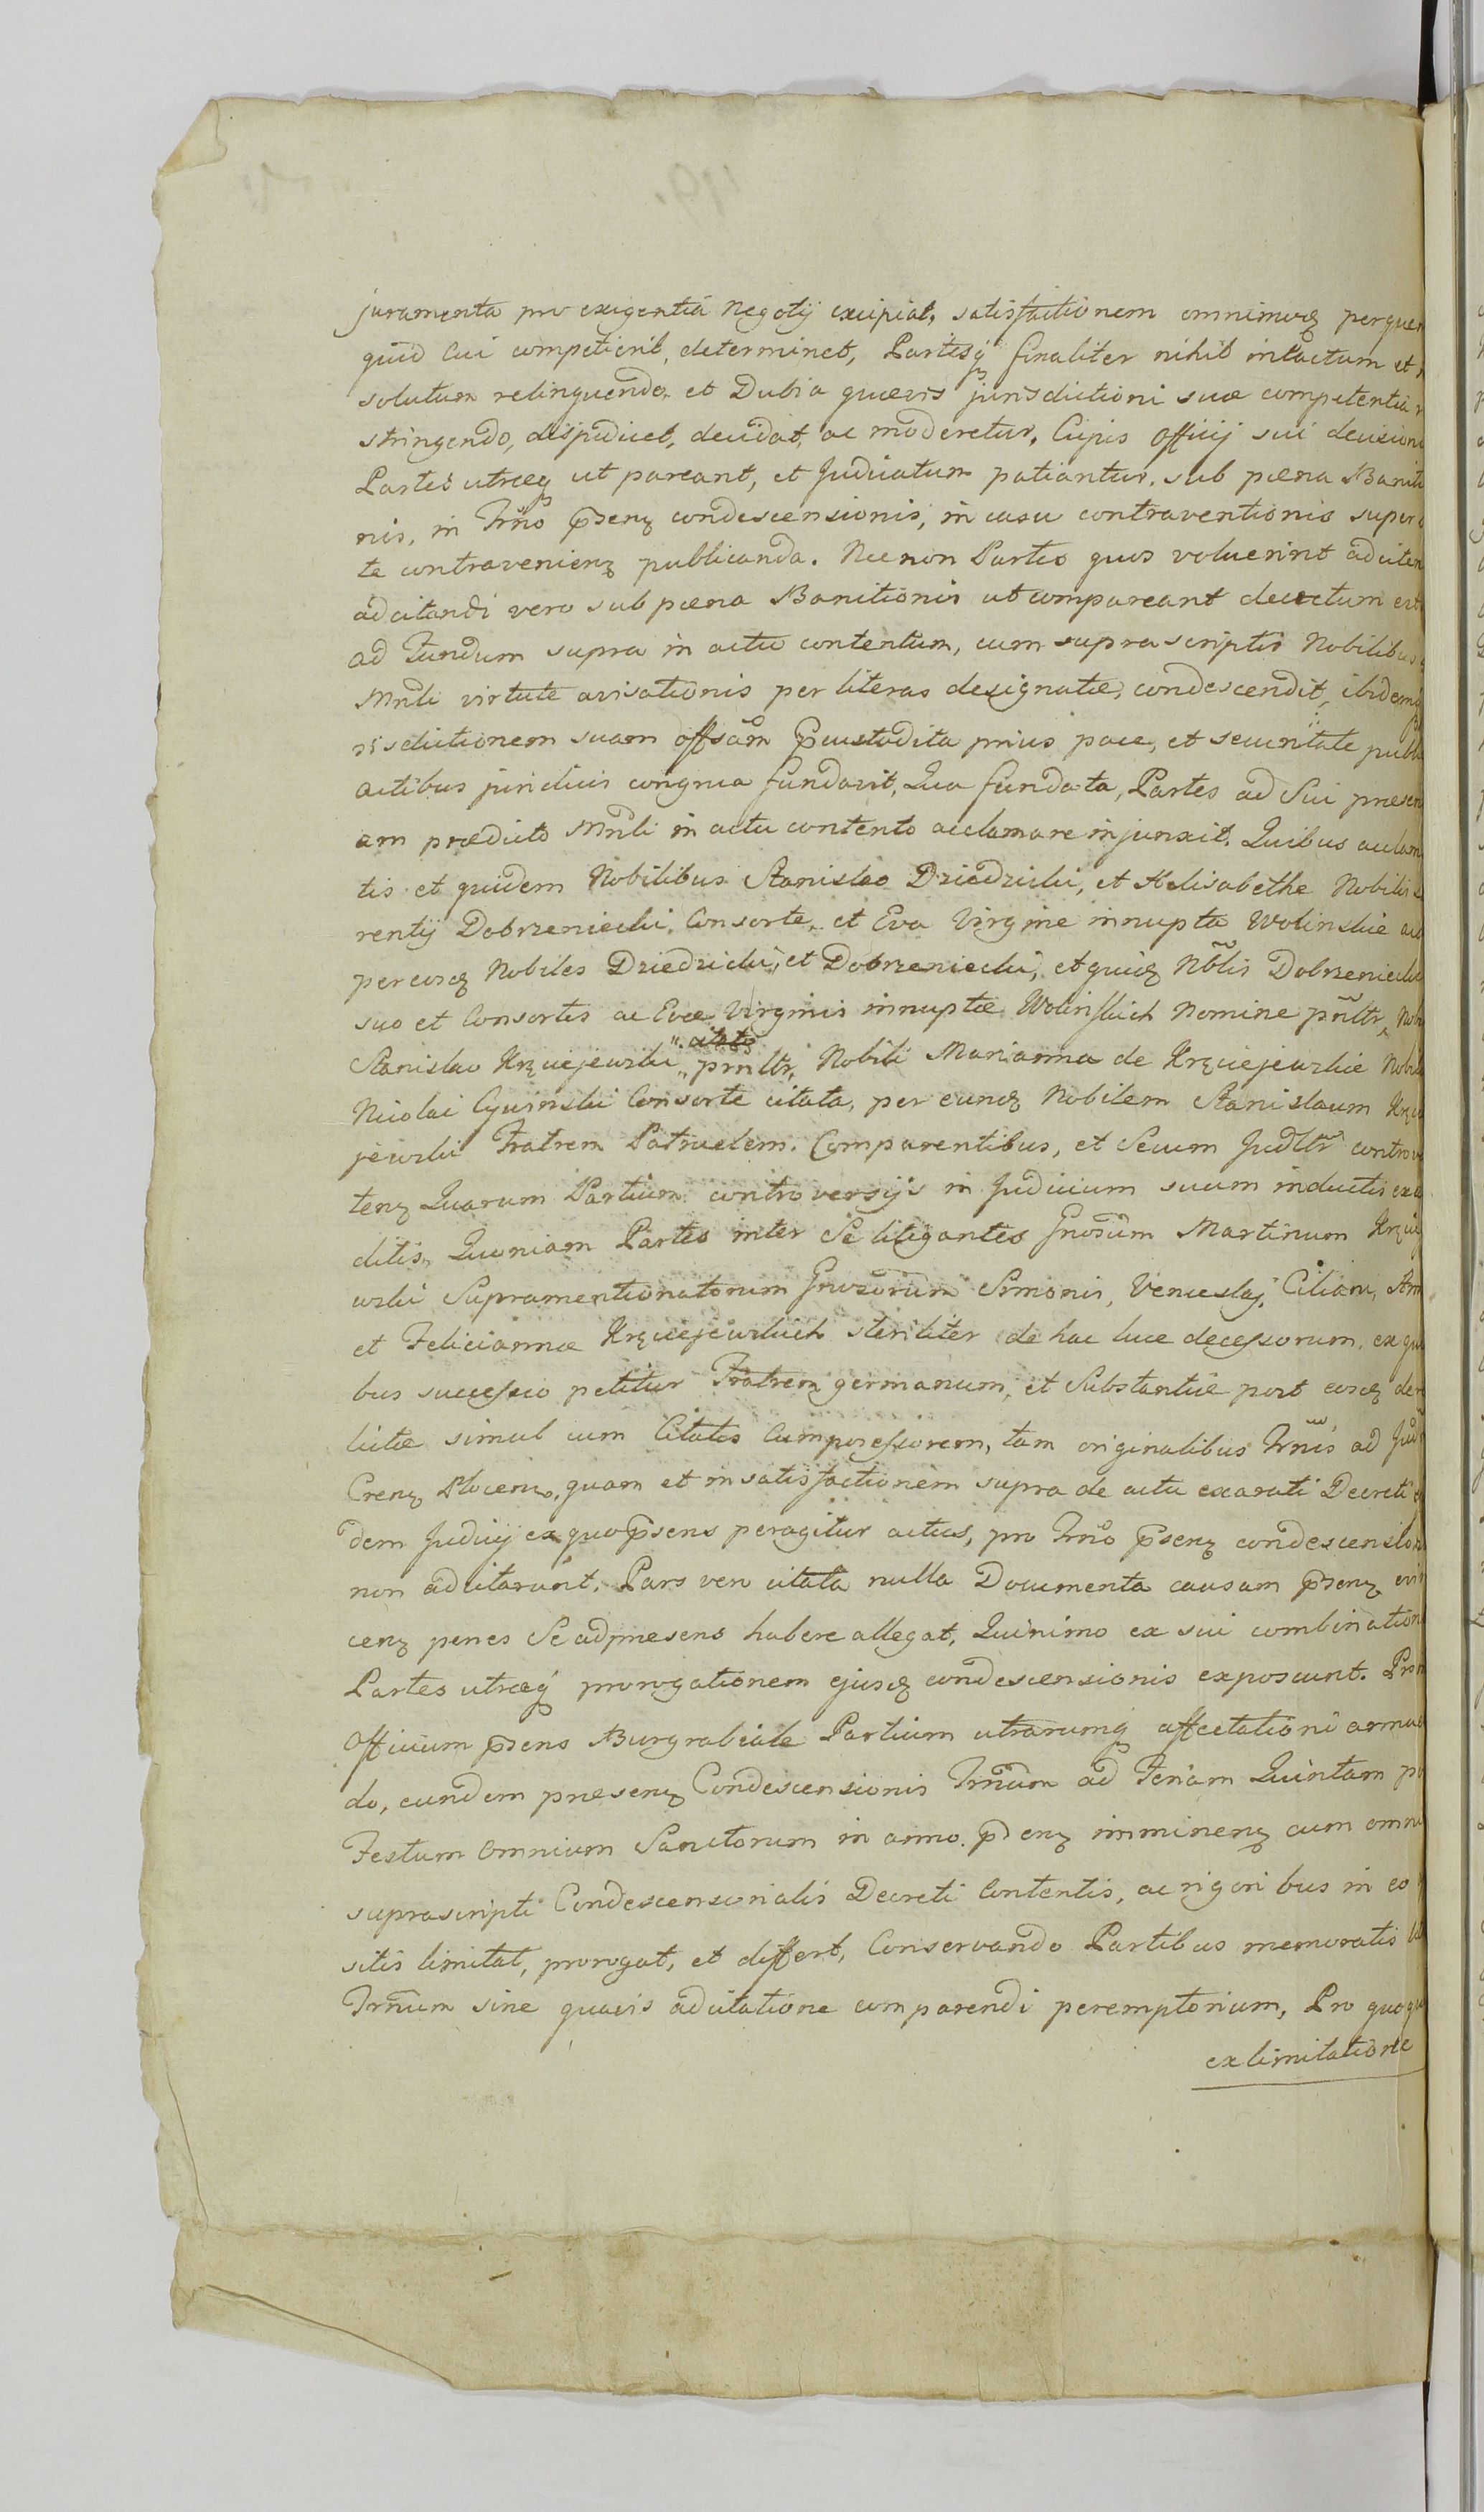 juramenta pro exigentiâ Negotij excipiat, satisfactionem omnimodȝ per quem
quid Cui competierit, determinet, Partesq finaliter nihil intactum et
solutum relinquendo, et Dubia quævis jurisdictioni suæ competentia
stringendo, dispudicet, decidat, ac moderetur, Cujus Officij sui decisioni
Partes utræq ut pareant, et Judicatum patiantur, sub pæna Baniti
nis, in Trño p̃senȝ condescensionis, in casu contraventionis super
te contravenienȝ publicanda. Nec non Partes quos voluerint adciten
adcitandi vero sub pæna Banitionis ut compareant decretum est
ad Fundum supra in actu contentum, cum supra scriptis Nobilibus
Mñli virtute avisationis per literas designatæ, condescendit, ibidemq
risdictionem suam offsãm p̃custodita prius pace, et securitate publi
actibus juridicis congrua fundavit, Qua fundata, Partes ad Sui præsen
am prædicto Mñli in actu contento acclamare injunxit. Quibus acclam
tis et quidem Nobilibus Stanislao Dziedzicki, et Helisabethe Nobilis
rentij Dobrzeniecki, Consorte, et Eva Virgine innupta Wolinskie
per eosȝ Nobiles Dziedzicki, et Dobrzeniecki, et quiȝ Nõblis Dobrzeniecki
suo et Consortis ac Evæ Virginis innuptæ Wolinskich Nomine pñltr, Nobi
citatȝ
Stanislao Kręciejewski " prnltr, Nobili Marianna de Kręciejewskie Nobi
Nicolai Cywinski Consorte citata, per eunȝ Nobilem Stanislaum Kręci
jewski Fratrem Patruelem. Comparentibus, et Secum Judltr controve
tenȝ Quarum Partium controversijs in Judicium suum inductis exau
ditis, Quoniam Partes inter Se litigantes Gnosum Martinum Kręcie
wski Supramentionatorum Gnosorum Simonis, Venceslaj, Ciliani,
et Feliciannæ Kręciejewskich steriliter de hac luce decessorum, ex qui
bus successio petitur Fratrem germanum, et Substantiæ post eosȝ de
lictæ simul cum Citatis Compossessorem, tam originalibus Trñis ad Jud
Crenȝ Plocenȝ, quam et in satisfactionem supra de actu exarati Decreti
dem Judicij ex quo p̃sens peragitur actus, pro Trño p̃senȝ condescensioni
non adcitarunt. Pars vero citata nulla Documenta causam p̃senȝ
cenȝ penes Se ad præsens habere allegat, Quinimo ex sui combination
Partes utræq prorogationem ejusȝ condescensionis exposcunt. Pro
Officium p̃sens Burgrabiale Partium utrarumq affectationi annu
do, eundem præsenȝ Condescensionis Trñum ad Feriam Quintam
Festum Omnium Sanctorum in anno p̃senȝ imminenȝ cum omni
suprascripti Condescensionalis Decreti Contentis, ac rigoribus in eo
sitis limitat, prorogat, et differt, Conservando Partibus memoratis
Trñum sine quavis adcitatione comparendi peremptorium, Pro quo
ex limitatione